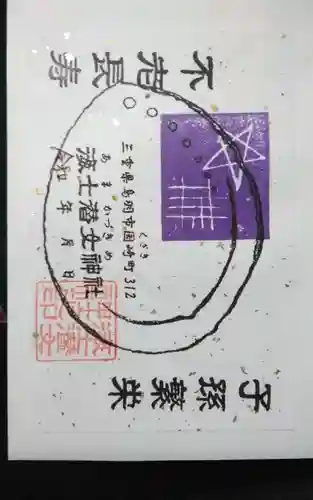 子孫繁栄
くざき
三重県鳥羽市国崎町312
あまかづきめ
海士潜女神社
令和 年 月 日
不老長寿